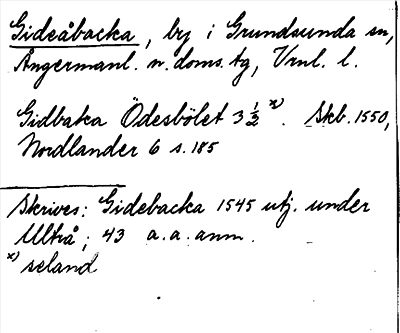 Gideåbacka, by i Grundsunda sn,
Ångermanl. n. doms. tg, Vnl. l.
Gidbaka Ödesbölet 3 ½ x). Skb. 1550,
Nordlander 6 s. 185
Skrives: Gidebacka 1545 utj. under
Ultrå; 43 a. a. anm.
x) seland